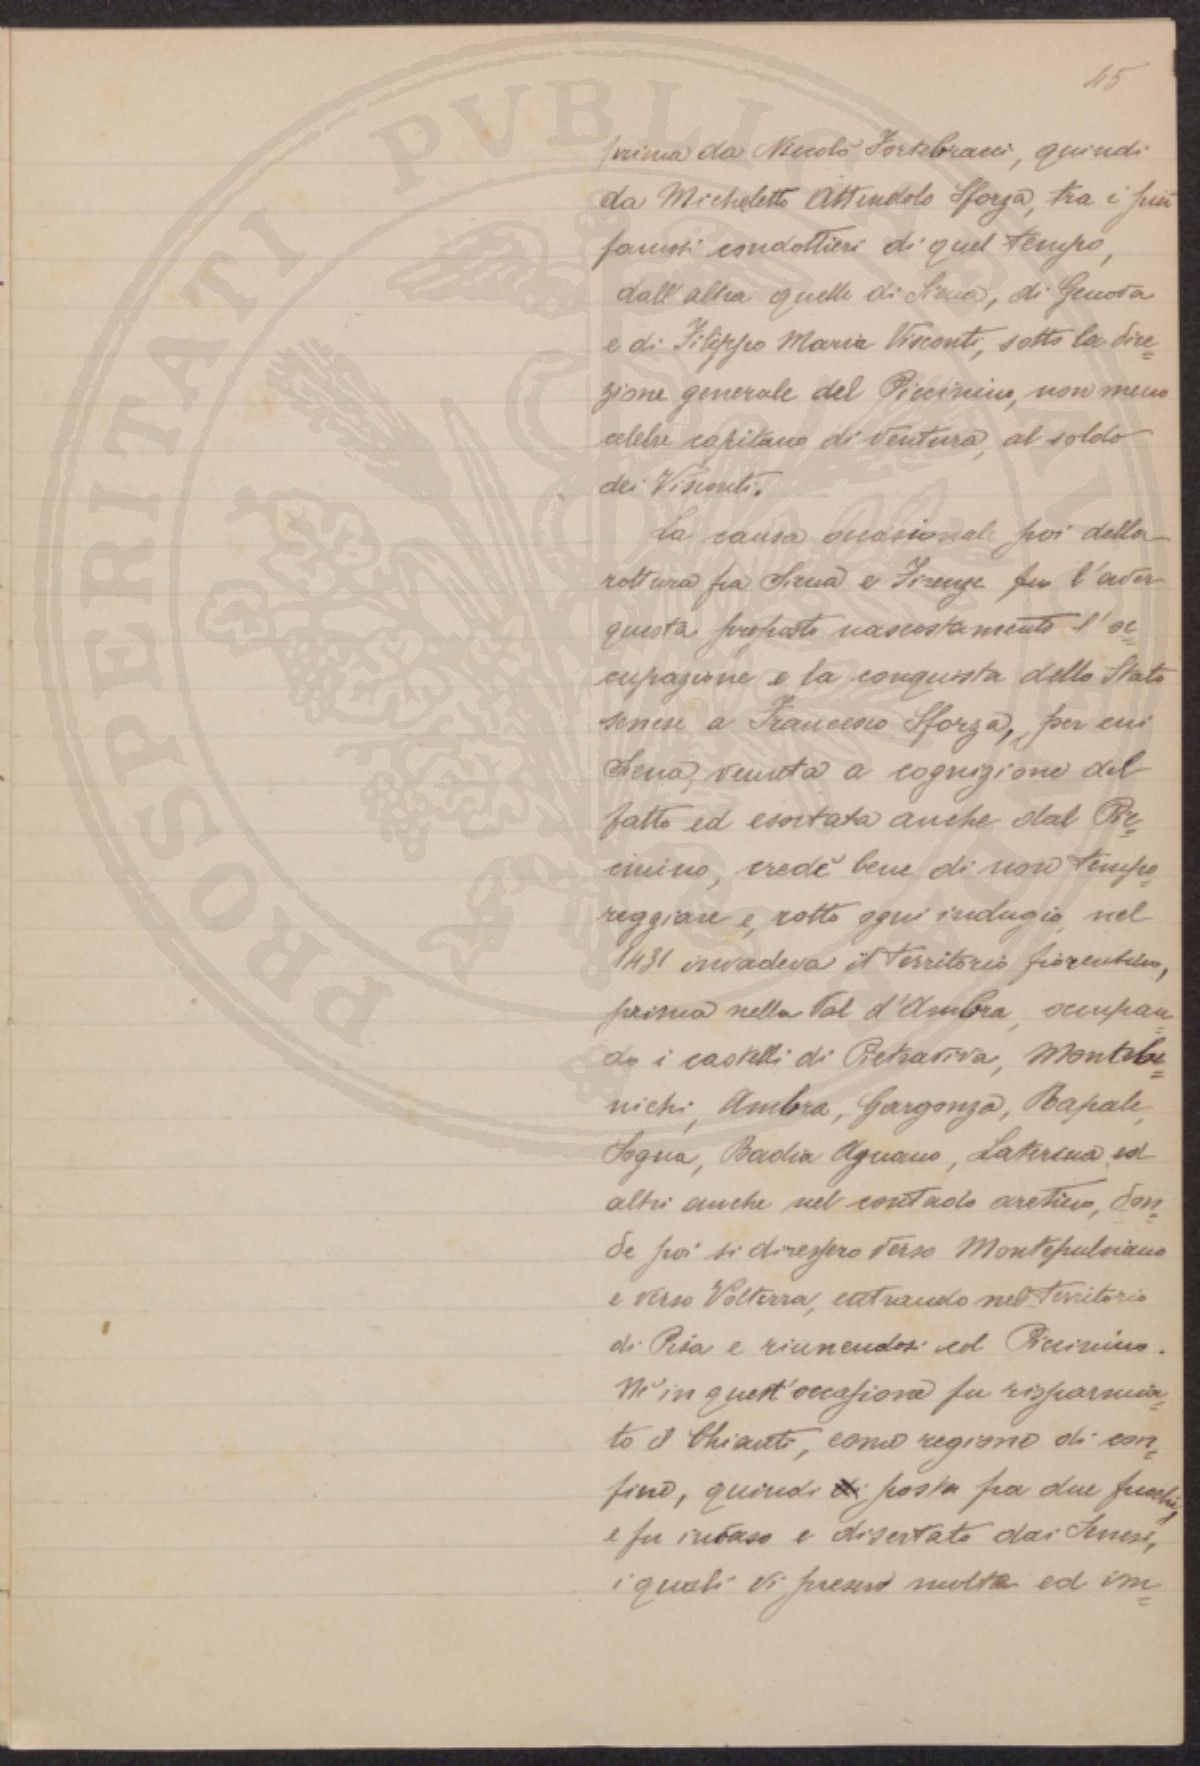 45
prima da Niccolò Fortebracci, quindi
da Micheletto Attendolo Sforza, tra i più
famosi condottieri di quel tempo,
dall'altra quelle di Siena, di Genova
e di Filippo Maria Visconti, sotto la dire=
zione generale del Piccinino, non meno
celebre capitano di ventura, al soldo
dei Visconti.
La causa occasionale poi della
rottura fra Siena e Firenze fu l'aver
questa proposto nascostamente l'oc=
cupazione e la conquista dello Stato
senese a Francesco Sforza, per cui
Siena, venuta a cognizione del
fatto ed esortata anche dal Pic=
cinino, credè bene di non tempo=
reggiare e, rotto ogni indugio, nel
1431 invadeva il territorio fiorentino,
prima nella Val d'Ambra, occupan=
do i castelli di Pietraviva, Montebe=
nichi, Ambra, Gargonza, Rapale,
Sogna, Badia Agnano, Laterina ed
altri anche nel contado aretino, don=
de poi si diressero verso Montepulciano
e verso Volterra, entrando nel territorio
di Pisa e riunendosi col Piccinino.
Nè in quest'occasione fu risparmia=
to il Chianti, come regione di con=
fine, quindi posta fra due fuochi,
e fu invaso e disertato dai Senesi,
i quali vi presero molte ed im=
PROSPERITATI PUBLICAE